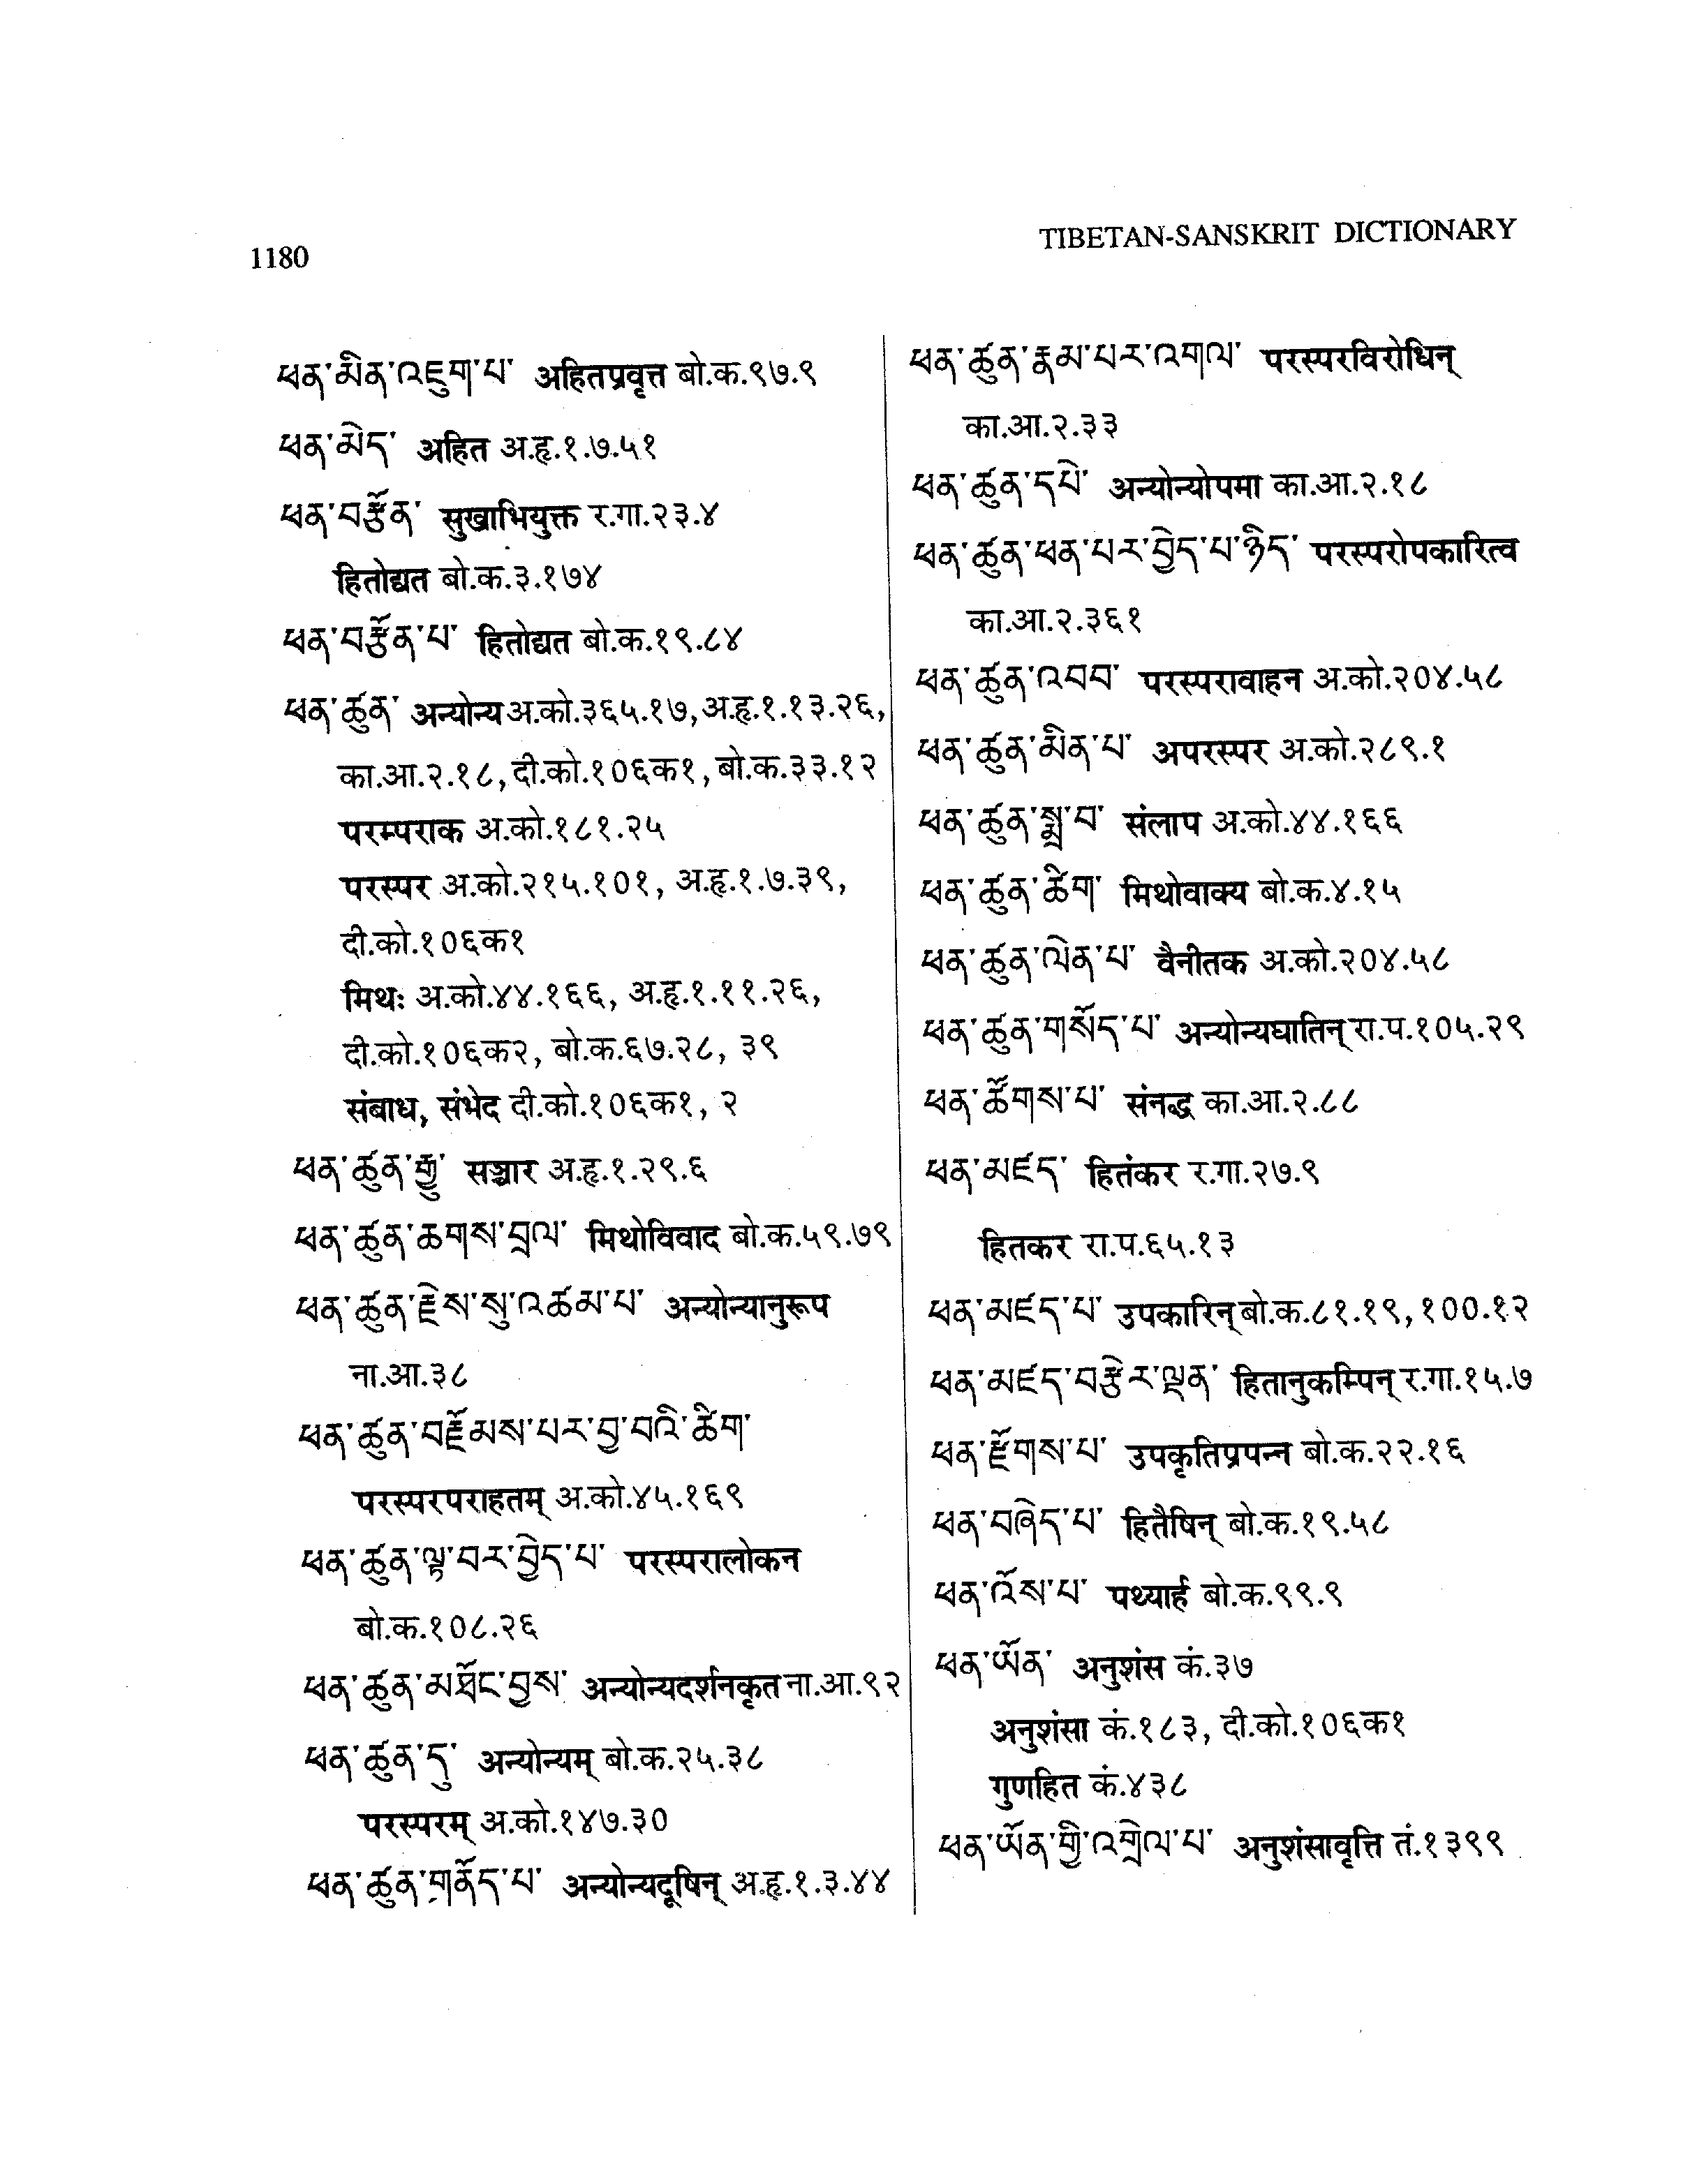 1180
TIBETAN-SANSKRIT DICTIONARY
ཕན་མིན་འཇུག་པ་ अहितप्रवृत्त बो.क.९७.९
ཕན་མེད་ अहित अ.हृ.१.७.५१
ཕན་བརྩོན་ सुखाभियुक्त र.गा.२३.४
हितोद्यत बो.क.३.१७४
ཕན་བརྩོན་པ་ हितोद्यत बो.क.१९.८४
ཕན་ཚུན་ अन्योन्य अ.को.३६५.१७, अ.हृ.१.१३.२६,
का.आ.२.१८, दी.को.१०६क१, बो.क.३३.१२
परम्पराक अ.को.१८१.२५
परस्पर अ.को.२१५.१०१, अ.हृ.१.७.३९,
दी.को.१०६क१
मिथः अ.को.४४.१६६, अ.हृ.१.११.२६,
दी.को.१०६क२, बो.क.६७.२८, ३९
संबाध, संभेद दी.को.१०६क१, २
ཕན་ཚུན་རྒྱུ་ सञ्चार अ.हृ.१.२९.६
ཕན་ཚུན་ཆགས་བྲལ་ मिथोविवाद बो.क.५९.७९
ཕན་ཚུན་རྗེས་སུ་འཚམ་པ་ अन्योन्यानुरूप
ना.आ.३८
ཕན་ཚུན་བརྗོམས་པར་བྱ་བའི་ཚིག་
परस्परपराहतम् अ.को.४५.१६९
ཕན་ཚུན་ལྟ་བར་བྱེད་པ་ परस्परालोकन
बो.क.१०८.२६
ཕན་ཚུན་མཐོང་བྱས་ अन्योन्यदर्शनकृत ना.आ.९२
ཕན་ཚུན་དུ་ अन्योन्यम् बो.क.२५.३८
परस्परम् अ.को.१४७.३०
ཕན་ཚུན་གནོད་པ་ अन्योन्यदूषिन् अ.हृ.१.३.४४
ཕན་ཚུན་རྣམ་པར་འགལ་ परस्परविरोधिन्
का.आ.२.३३
ཕན་ཚུན་དཔེ་ अन्योन्योपमा का.आ.२.१८
ཕན་ཚུན་ཕན་པར་བྱེད་པ་ཉིད་ परस्परोपकारित्व
का.आ.२.३६१
ཕན་ཚུན་འབབ་ परस्परावाहन अ.को.२०४.५८
ཕན་ཚུན་མིན་པ་ अपरस्पर अ.को.२८९.१
ཕན་ཚུན་སྨྲ་བ་ संलाप अ.को.४४.१६६
ཕན་ཚུན་ཚིག་ मिथोवाक्य बो.क.४.१५
ཕན་ཚུན་ལེན་པ་ वैनीतक अ.को.२०४.५८
ཕན་ཚུན་གསོད་པ་ अन्योन्यघातिन् रा.प.१०५.२९
ཕན་ཚོགས་པ་ संनद्ध का.आ.२.८८
ཕན་མཛད་ हितंकर र.गा.२७.९
हितकर रा.प.६५.१३
ཕན་མཛད་པ་ उपकारिन् बो.क.८१.१९, १००.१२
ཕན་མཛད་བརྩེར་ལྡན་ हितानुकम्पिन् र.गा.१५.७
ཕན་རྫོགས་པ་ उपकृतिप्रपन्न बो.क.२२.१६
ཕན་བཞེད་པ་ हितैषिन् बो.क.१९.५८
ཕན་འོས་པ་ पथ्यार्ह बो.क.९९.९
ཕན་ཡོན་ अनुशंस कं.३७
अनुशंसा कं.१८३, दी.को.१०६क१
गुणहित कं.४३८
ཕན་ཡོན་གྱི་འགྲེལ་པ་ अनुशंसावृत्ति तं.१३९९